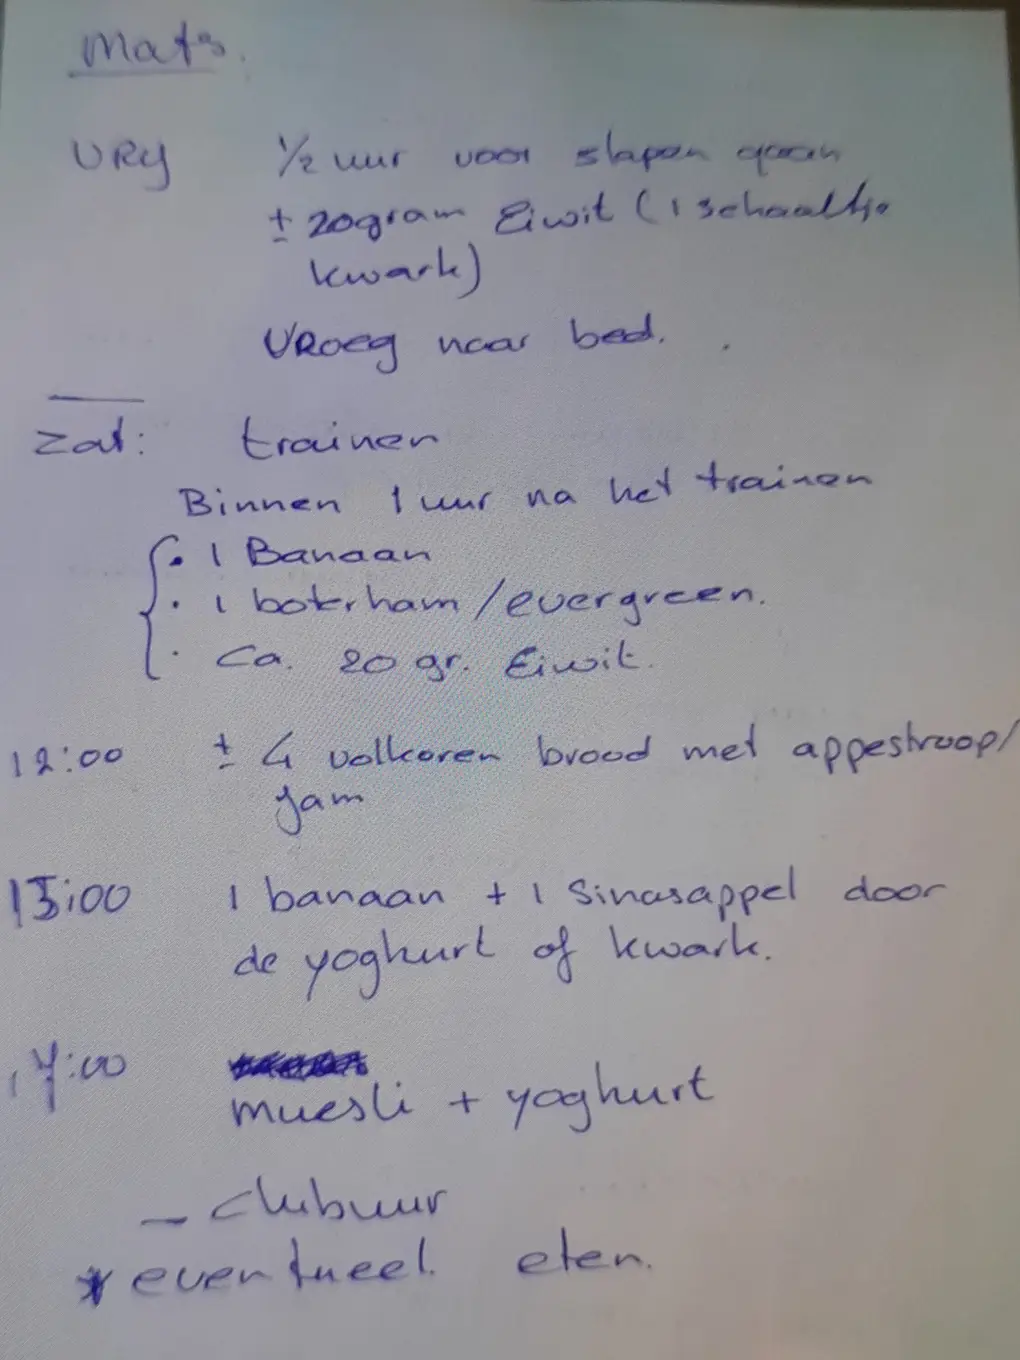 Mats.
VRY 1/2 uur voor slapen gaan
± 20gram Eiwit (1 schaaltje
kwark)
VRoeg naar bed.
Zat: trainen
Binnen 1 uur na het trainen
• 1 Banaan
• 1 boterham/evergreen.
• Ca. 20 gr. Eiwit.
12:00 ± 4 volkoren brood met appestroop/
jam
15:00 1 banaan + 1 Sinasappel door
de yoghurt of kwark.
17:00
muesli + yoghurt
- clubuur
* eventueel eten.